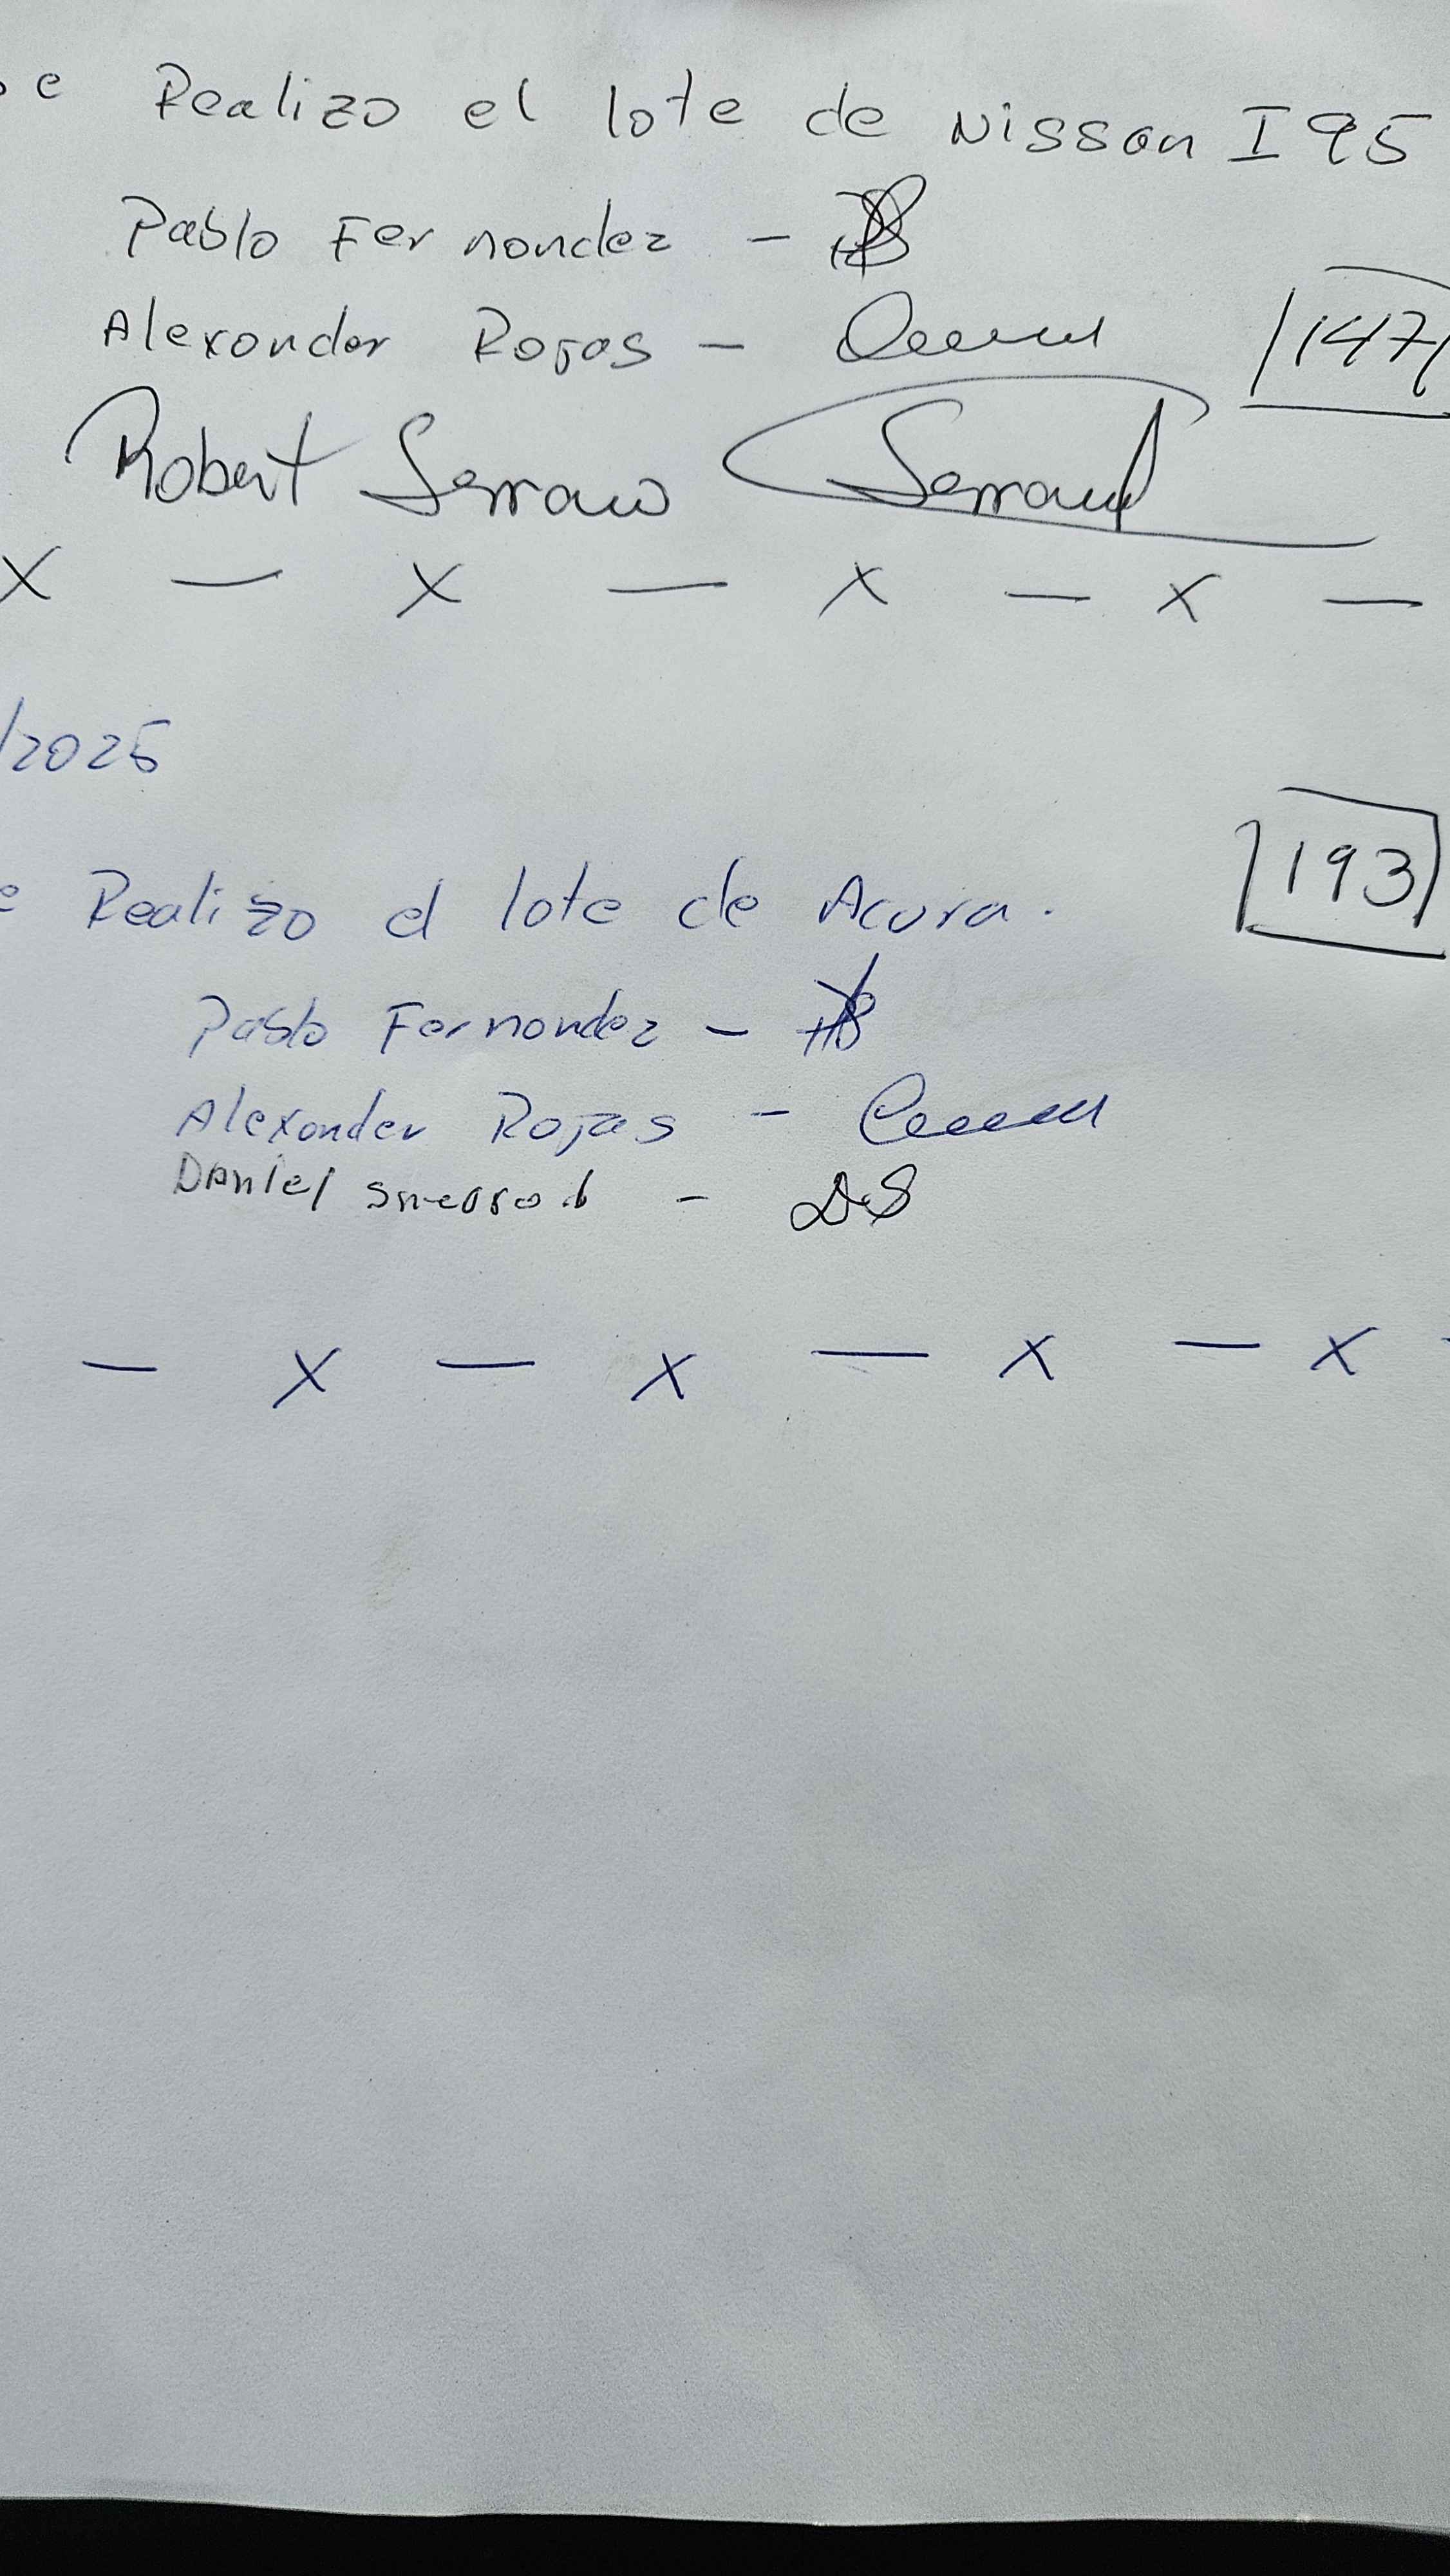 e Realizo el lote de Nissan I 95
Pablo Fernandez -
Alexander Rojas -
147
Robert Serrano Serrano
X — X — X — X —
/2025
193
e Realizo el lote de Acura.
Pablo Fernandez -
Alexander Rojas -
Daniel - DS
— X — X — X — X